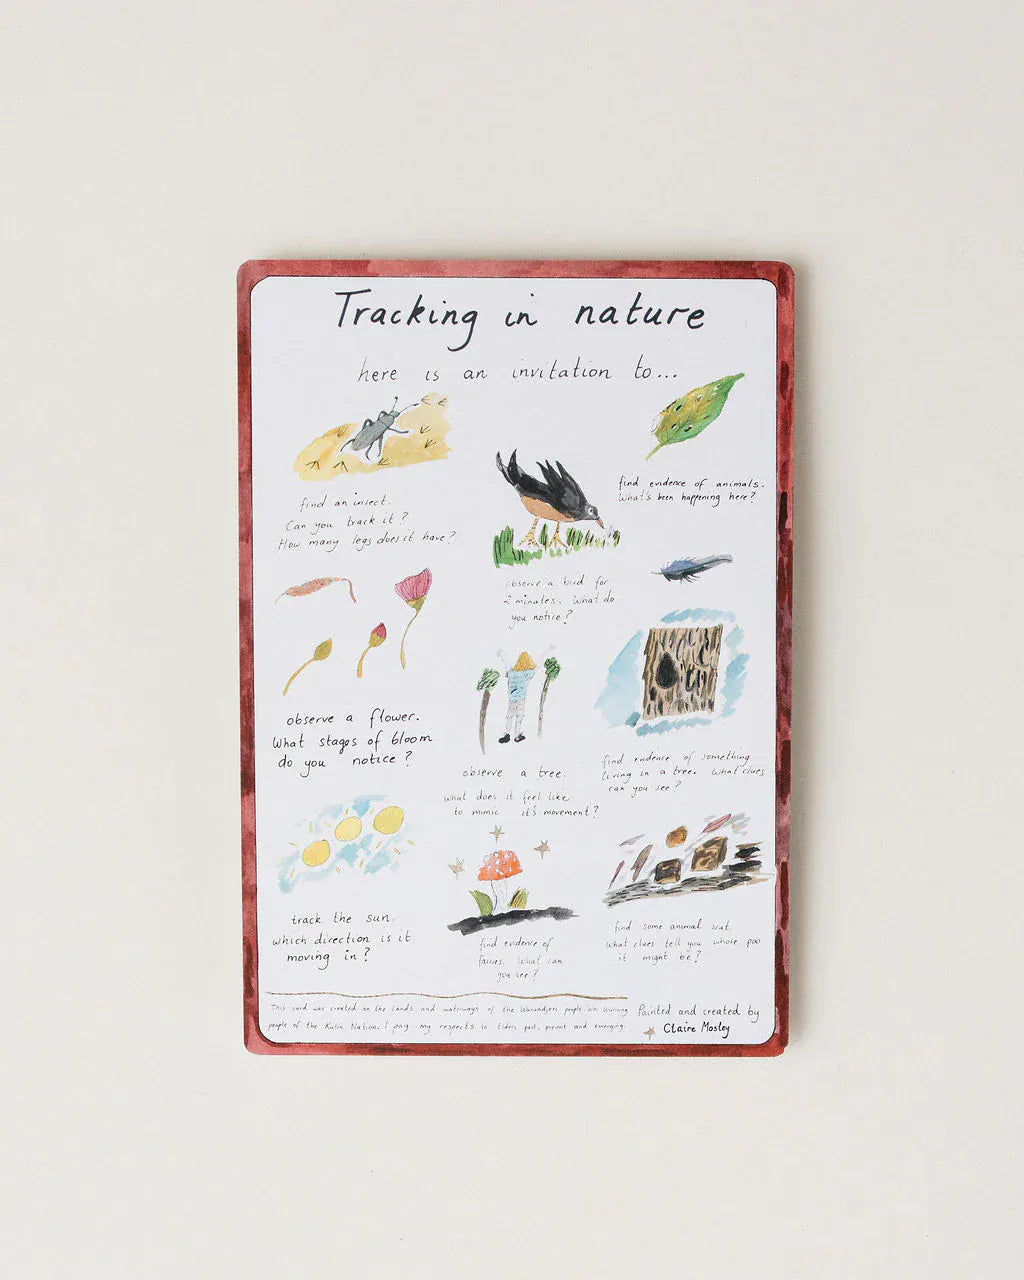 Tracking in nature
here is an invitation to...
find an insect.
Can you track it?
How many legs does it have?
observe a bird for
2 minutes. What do
you notice?
find evidence of animals.
What's been happening here?
observe a flower.
What stages of bloom
do you notice?
observe a tree.
what does it feel like
to mimic it's movement?
find evidence of something
living in a tree. What clues
can you see?
track the sun.
which direction is it
moving in?
find evidence of
fairies. What can
you see?
find some animal scat.
what clues tell you whose poo
it might be?
This card was created on the lands and waterways of the Wurundjeri people Woi Wurrung
people of the Kulin Nation. I pay my respects to Elders past, present and emerging.
Painted and created by
Claire Mosley